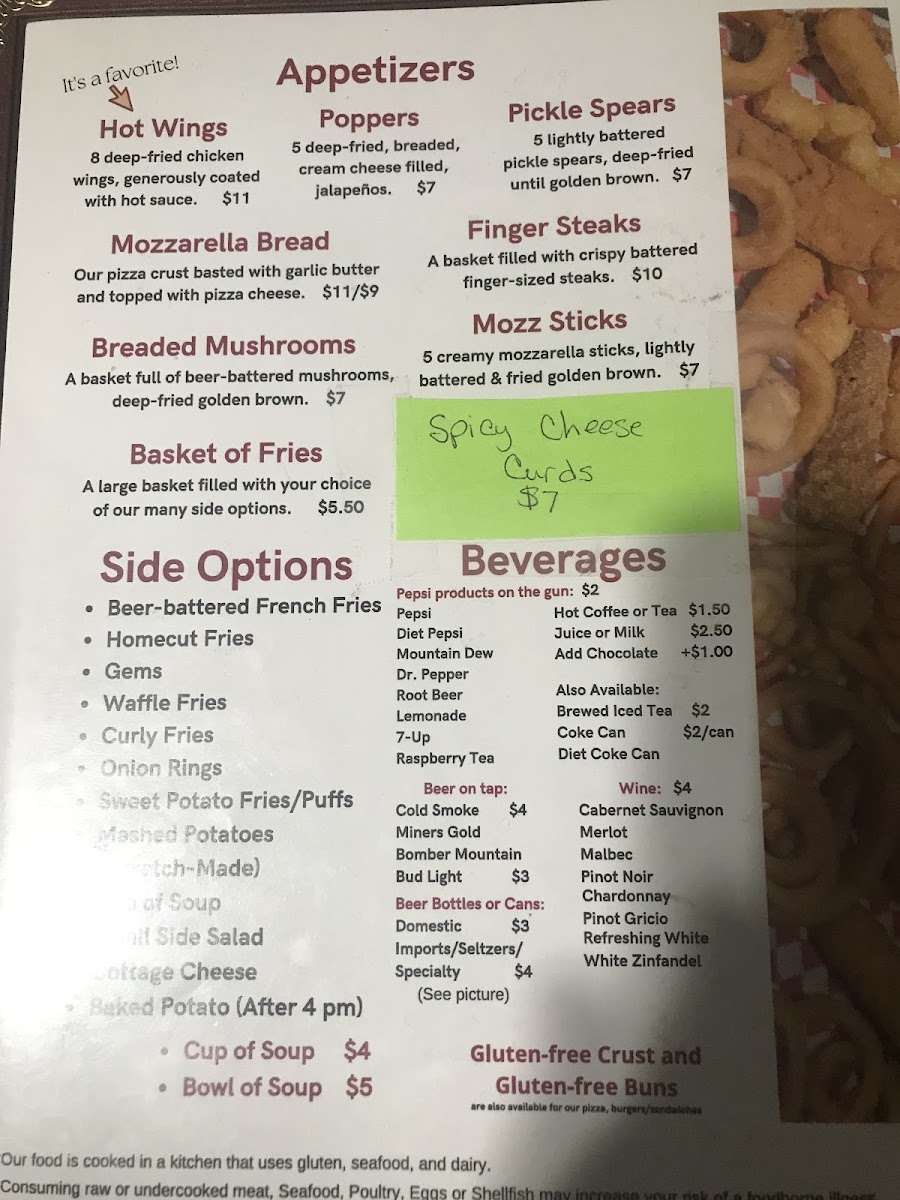 It's a favorite!
Appetizers
Hot Wings
8 deep-fried chicken
wings, generously coated
with hot sauce. $11
Poppers
5 deep-fried, breaded,
cream cheese filled,
jalapeños. $7
Pickle Spears
5 lightly battered
pickle spears, deep-fried
until golden brown. $7
Mozzarella Bread
Our pizza crust basted with garlic butter
and topped with pizza cheese. $11/$9
Finger Steaks
A basket filled with crispy battered
finger-sized steaks. $10
Breaded Mushrooms
A basket full of beer-battered mushrooms,
deep-fried golden brown. $7
Mozz Sticks
5 creamy mozzarella sticks, lightly
battered & fried golden brown. $7
Basket of Fries
A large basket filled with your choice
of our many side options. $5.50
Spicy Cheese
Curds
$7
Side Options
• Beer-battered French Fries
• Homecut Fries
• Gems
• Waffle Fries
• Curly Fries
• Onion Rings
• Sweet Potato Fries/Puffs
Mashed Potatoes
of Soup
Side Salad
Cottage Cheese
• Baked Potato (After 4 pm)
• Cup of Soup $4
• Bowl of Soup $5
Beverages
Pepsi products on the gun: $2
Pepsi
Diet Pepsi
Mountain Dew
Dr. Pepper
Root Beer
Lemonade
7-Up
Raspberry Tea
Hot Coffee or Tea $1.50
Juice or Milk $2.50
Add Chocolate +$1.00
Also Available:
Brewed Iced Tea $2
Coke Can $2/can
Diet Coke Can
Beer on tap:
Cold Smoke $4
Miners Gold
Bomber Mountain
Bud Light $3
Beer Bottles or Cans:
Domestic $3
Imports/Seltzers/
Specialty $4
(See picture)
Wine: $4
Cabernet Sauvignon
Merlot
Malbec
Pinot Noir
Chardonnay
Pinot Gricio
Refreshing White
White Zinfandel
Gluten-free Crust and
Gluten-free Buns
are also available for our pizza, burgers/sandwiches
Our food is cooked in a kitchen that uses gluten, seafood, and dairy.
Consuming raw or undercooked meat, Seafood, Poultry, Eggs or Shellfish may increase your risk of a foodborne